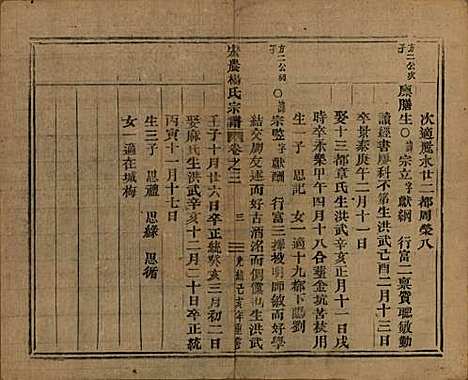 次適鳳水廿二都周榮八
方二公次子
廪膳生〇諱宗立字獻綱行富二稟質聰敏勤
讀經書廖科不第生洪武己酉二月十三日
卒景泰庚午二月十一日
娶十三都章氏生洪武辛亥正月十一日戌
時卒永樂甲午四月十八合葬金坑苦枝用
生一子思記女一適十九都下陽劉
方二公三子
〇諱宗晗字獻酬行富三揮被明師敏而好學
結交朋友述而好古酒洺而倜儻生洪武
宏農楊氏宗譜
卷之二
三
光緒己亥年重修
壬子十月廿六日卒正統癸亥三月初二日
娶麻氏生洪武辛亥十二月二十日卒正統
丙寅十一月十七日
生三子思禮思緣思循
女一適在城梅